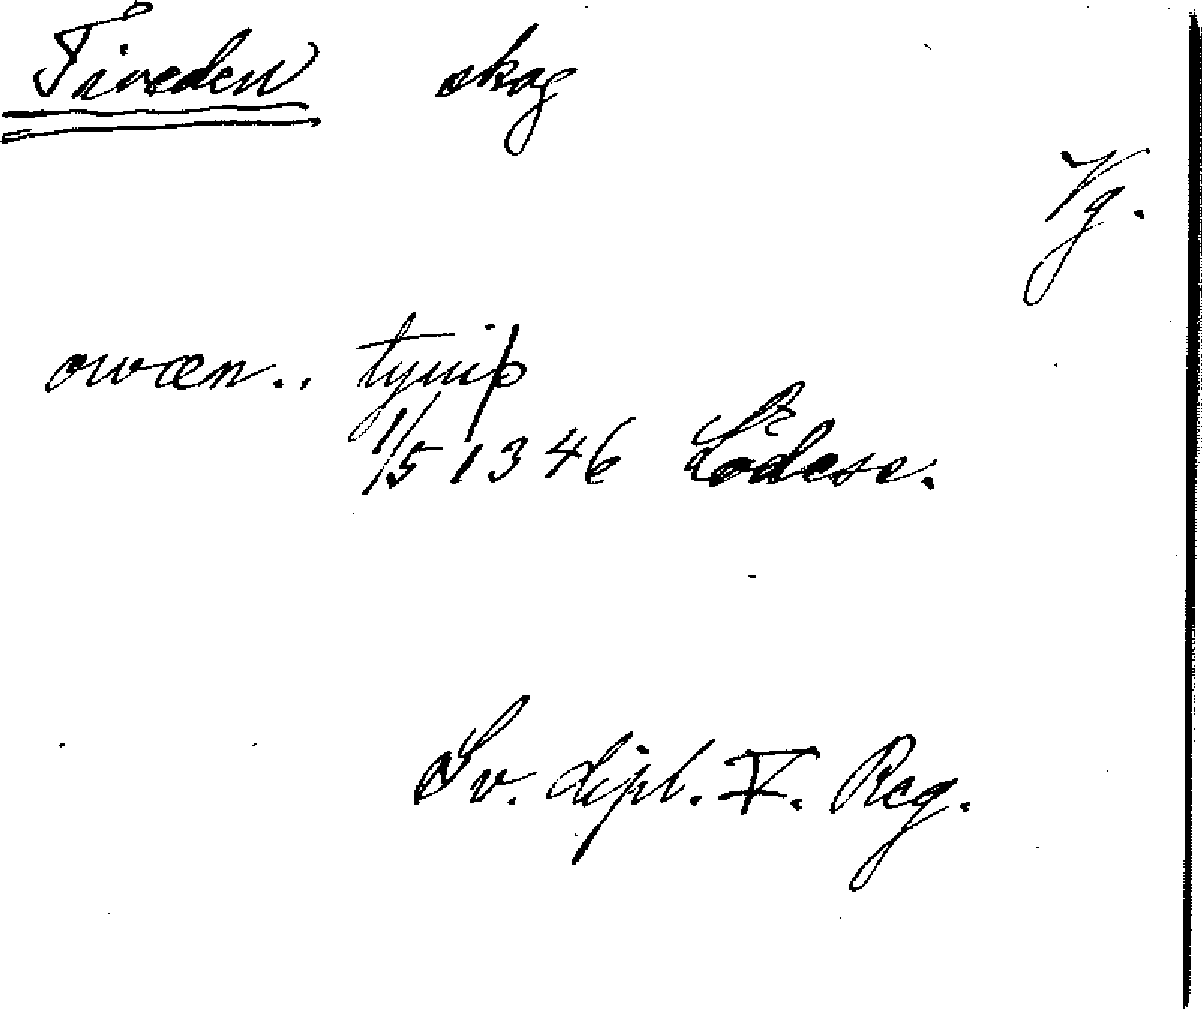 Tiveden skog
Vg.
owæn.. tywiþ
1/5 1346 Lödese.
Sv. dipl. V. Reg.